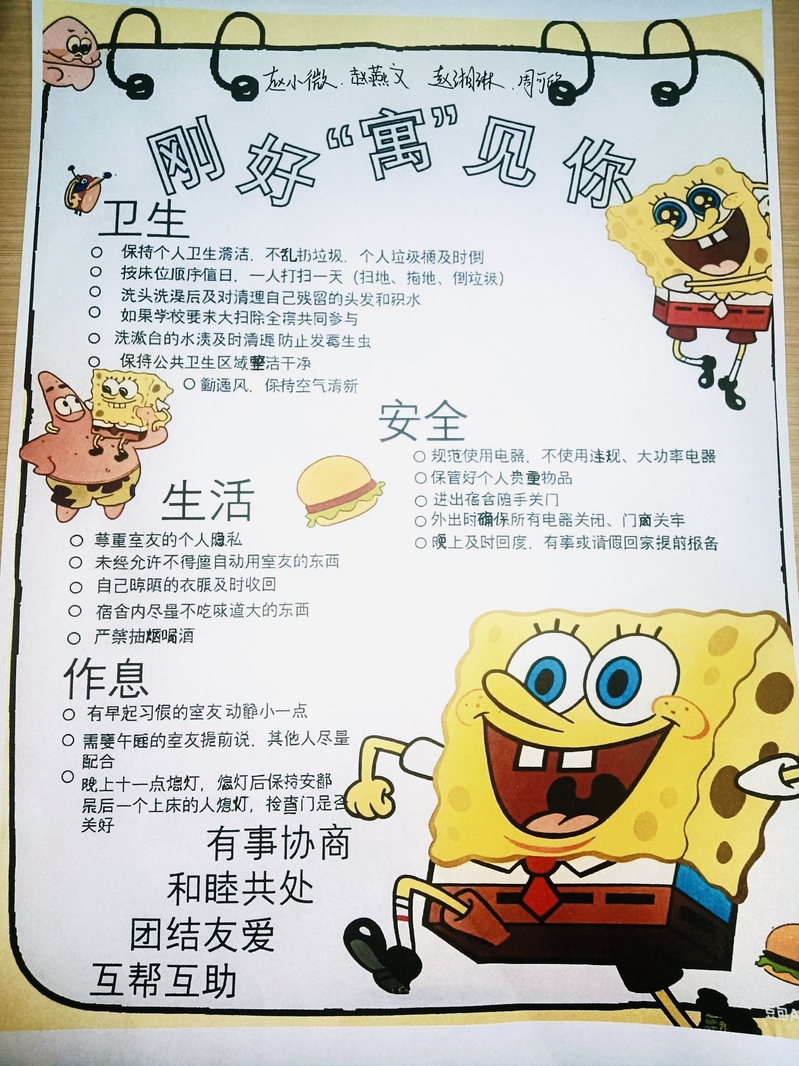 赵小微、赵燕文 赵湘琳、周可欣
刚好“寓”见你
卫生
保持个人卫生清洁，不乱扔垃圾，个人垃圾桶及时倒
按床位顺序值日，一人打扫一天（扫地、拖地、倒垃圾）
洗头洗澡后及对清理自己残留的头发和积水
如果学校要求大扫除全寝共同参与
洗漱台的水渍及时清理防止发霉生虫
保持公共卫生区域整洁干净
勤通风，保持空气清新
安全
规范使用电器，不使用违规、大功率电器
保管好个人贵重物品
进出宿舍随手关门
外出时确保所有电器关闭、门窗关牢
晚上及时回寝，有事或请假回家提前报备
生活
尊重室友的个人隐私
未经允许不得擅自动用室友的东西
自己晾晒的衣服及时收回
宿舍内尽量不吃味道大的东西
严禁抽烟喝酒
作息
有早起习惯的室友动静小一点
需要午睡的室友提前说，其他人尽量
配合
晚上十一点熄灯，熄灯后保持安静
最后一个上床的人熄灯，检查门是否
关好
有事协商
和睦共处
团结友爱
互帮互助
豆包A